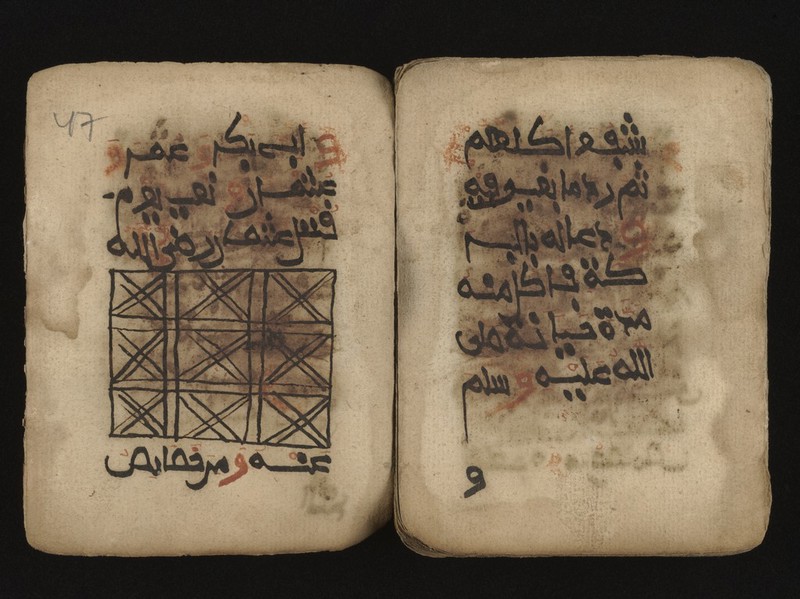 شبعوا كلهم
ثم رد ما بقي فيه
و دعا له بالبر
كة فاكل منه
مدة حياته صلى
الله عليه و سلم
و
47
ابي بكر و عمر و
عثمان نهب يوم
قتل عثمان رضي الله
عنه و من خصايص